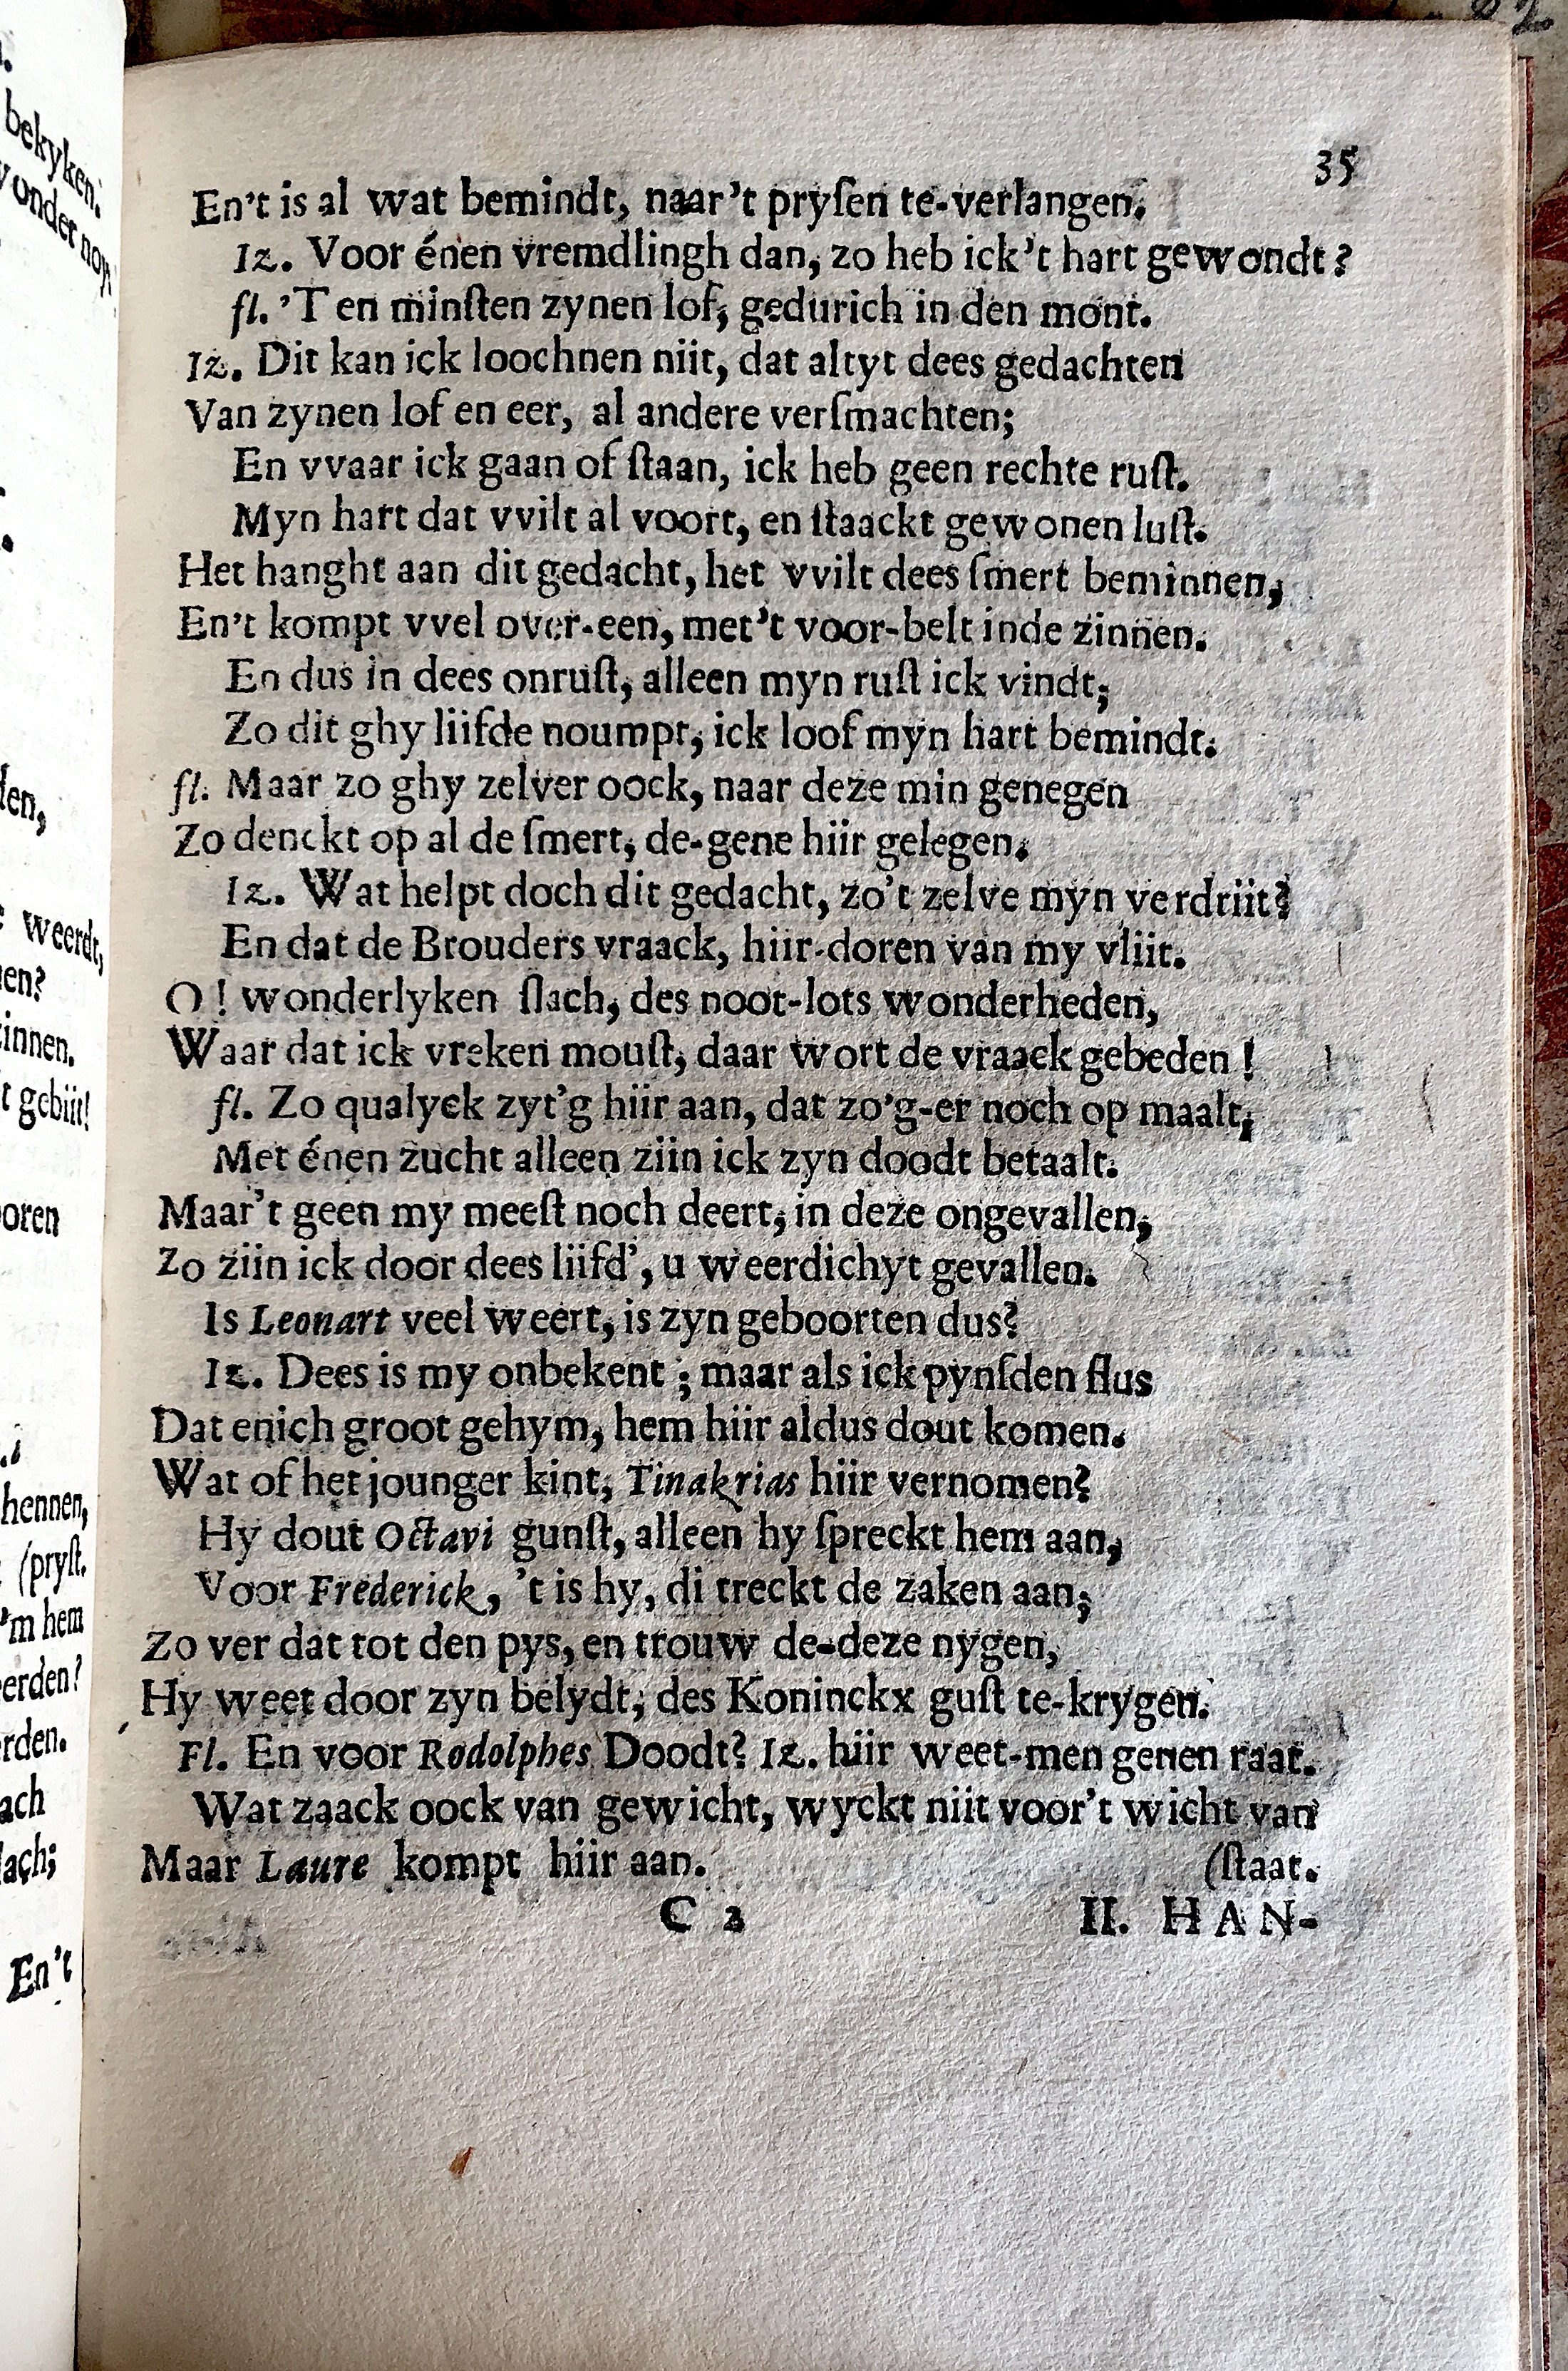 35
En't is al wat bemindt, naar't pryſen te-verlangen.
Iz. Voor énen vremdlingh dan, zo heb ick't hart gewondt?
fl. 'T en minſten zynen lof, gedurich in den mont.
Iz. Dit kan ick loochnen niit, dat altyt dees gedachten
Van zynen lof en eer, al andere verſmachten;
En vvaar ick gaan of ſtaan, ick heb geen rechte ruſt.
Myn hart dat vvilt al voort, en ſtaackt gewonen luſt.
Het hanght aan dit gedacht, het vvilt dees ſmert beminnen,
En't kompt vvel over-een, met't voor-belt inde zinnen.
En dus in dees onruſt, alleen myn ruſt ick vindt;
Zo dit ghy liifde noumpt, ick loof myn hart bemindt.
fl. Maar zo ghy zelver oock, naar deze min genegen
Zo denckt op al de ſmert, de-gene hiir gelegen.
Iz. Wat helpt doch dit gedacht, zo't zelve myn verdriit?
En dat de Brouders vraack, hiir-doren van my vliit.
O! wonderlyken ſlach, des noot-lots wonderheden,
Waar dat ick vreken mouſt, daar wort de vraack gebeden!
fl. Zo qualyck zyt'g hiir aan, dat zo'g-er noch op maalt;
Met énen zucht alleen ziin ick zyn doodt betaalt.
Maar't geen my meeſt noch deert, in deze ongevallen,
Zo ziin ick door dees liifd', u weerdichyt gevallen.
Is Leonart veel weert, is zyn geboorten dus?
Iz. Dees is my onbekent; maar als ick pynſden flus
Dat enich groot gehym, hem hiir aldus dout komen.
Wat of het jounger kint, Tinakrias hiir vernomen?
Hy dout Octavi gunſt, alleen hy ſpreckt hem aan,
Voor Frederick, 't is hy, di treckt de zaken aan;
Zo ver dat tot den pys, en trouw de-deze nygen,
Hy weet door zyn belydt, des Koninckx guſt te-krygen.
Fl. En voor Rodolphes Doodt? Iz. hiir weet-men genen raat.
Wat zaack oock van gewicht, wyckt niit voor't wicht van
Maar Laure kompt hiir aan. (ſtaat.
C 2 II. HAN-
bekyken.
weerdt,
innen.
t gebiit!
oren
hennen,
(pryſt.
'm hem
erden?
rden.
ach
En't